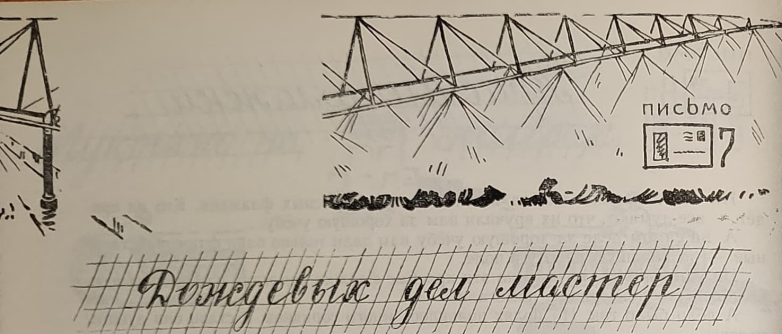 письмо
7
Дождевых дел мастер